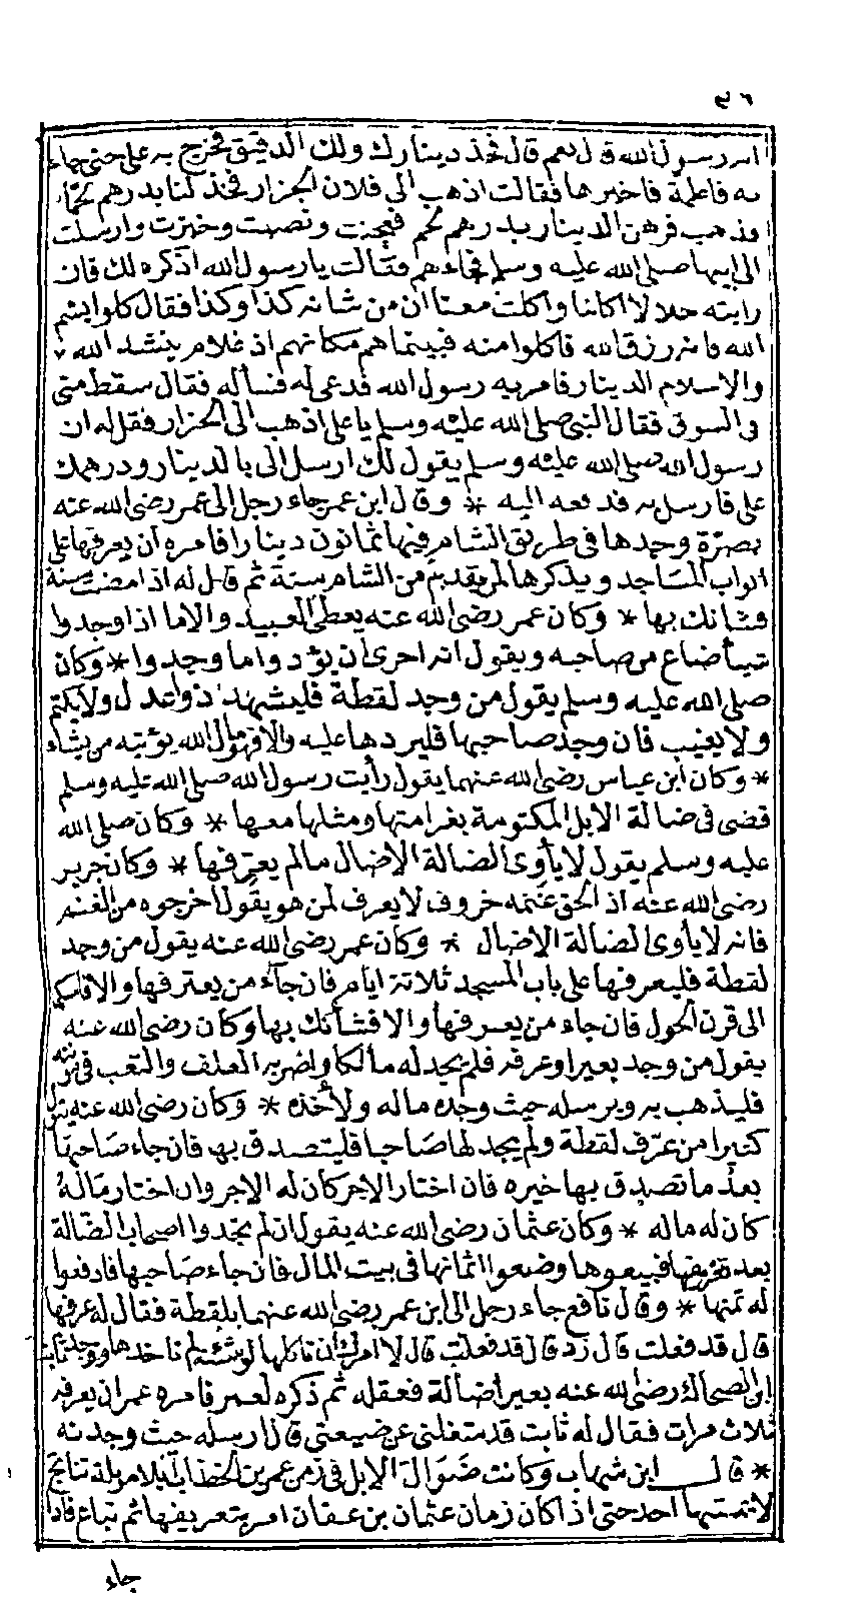 ٩٦
ابن رسول الله قال نعم قال فخذ دينارك ولك الدقيق فخرج به على حتى جاء
به فاطمة فاخبرها فقالت اذهب الى فلان الجزار فخذ لنا بدرهم لحما
فذهب فرهن الدينار بدرهم لحم فعجنت ونصبت وخبزت وارسلت
الى ابيها صلى الله عليه وسلم فجاءهم فقالت يا رسول الله اذكره لك فان
رايته حلالا اكلنا واكلت معنا ان من شانه كذا وكذا فقال كلوا بسم
الله فانه رزق الله فاكلوا منه فبينما هم مكانهم اذ غلام ينشد الله
والاسلام الدينار فامر به رسول الله فدعى له فسأله فقال سقط منى
فى السوق فقال النبى صلى الله عليه وسلم يا على اذهب الى الجزار فقل له ان
رسول الله صلى الله عليه وسلم يقول لك ارسل الى بالدينار ودرهمك
على فارسل به فدفعه اليه * وقال ابن عمر جاء رجل الى عمر رضى الله عنه
بصرة وجدها فى طريق الشام فيها ثمانون دينارا فامره ان يعرفها على
ابواب المساجد ويذكرها لمن يقدم من الشام سنة ثم قال له اذا مضت سنة
فشانك بها * وكان عمر رضى الله عنه يعطى العبيد والاما اذا وجدوا
شيأ ضاع من صاحبه ويقول انه احرى ان يؤدوا ما وجدوا * وكان
صلى الله عليه وسلم يقول من وجد لقطة فليشهد ذوا عدل ولا يكتم
ولا يغيب فان وجد صاحبها فليردها عليه والا فهو مال الله يؤتيه من يشاء
* وكان ابن عباس رضى الله عنهما يقول رأيت رسول الله صلى الله عليه وسلم
قضى فى ضالة الابل المكتومة بغرامتها ومثلها معها * وكان صلى الله
عليه وسلم يقول لا يأوى الضالة الا ضال ما لم يعرفها * وكان جرير
رضى الله عنه اذا لحق غنمه خروف لا يعرف لمن هو يقول اخرجوه من الغنم
فانه لا يأوى الضالة الا ضال * وكان عمر رضى الله عنه يقول من وجد
لقطة فليعرفها على باب المسجد ثلاثة ايام فان جاء من يعترفها والا
الى قرن الحول فان جاء من يعرفها والا فشأنك بها وكان رضى الله عنه
يقول من وجد بعيرا وعرفه فلم يجد له مالكا واضر به العلف والتعب فى مؤنته
فليذهب به ويرسله حيث وجده ماله ولأخذه * وكان رضى الله عنه يقول
كثيرا من عرف لقطة ولم يجد لها صاحبا فليتصدق بها فان جاء صاحبها
بعد ما تصدق بها خيره فان اختار الاجر كان له الاجر وان اختار ماله
كان له ماله * وكان عثمان رضى الله عنه يقول ان لم تجدوا اصحاب الضالة
بعد تعريفها فبيعوها وضعوا اثمانها فى بيت المال فان جاء صاحبها فادفعوا
له ثمنها * وقال نافع جاء رجل الى ابن عمر رضى الله عنهما بلقطة فقال له عرفها
قال قد فعلت قال زد قال قد فعلت قال لا امرك ان تاكلها لو شئت لم تاخذها ووجد ثابت
ابن الضحاك رضى الله عنه بعيرا ضالة فعقله ثم ذكره لعمر فامره عمر ان يعرفه
ثلاث مرات فقال له ثابت قد شغلنى عن ضيعتى قال ارسله حيث وجدته
* قال ابن شهاب وكانت ضوال الابل فى زمن عمر بن الخطاب ابلا مؤبلة تناتج
لا يمسها احد حتى اذا كان زمان عثمان بن عفان امر بتعريفها ثم تباع فاذا
جاء